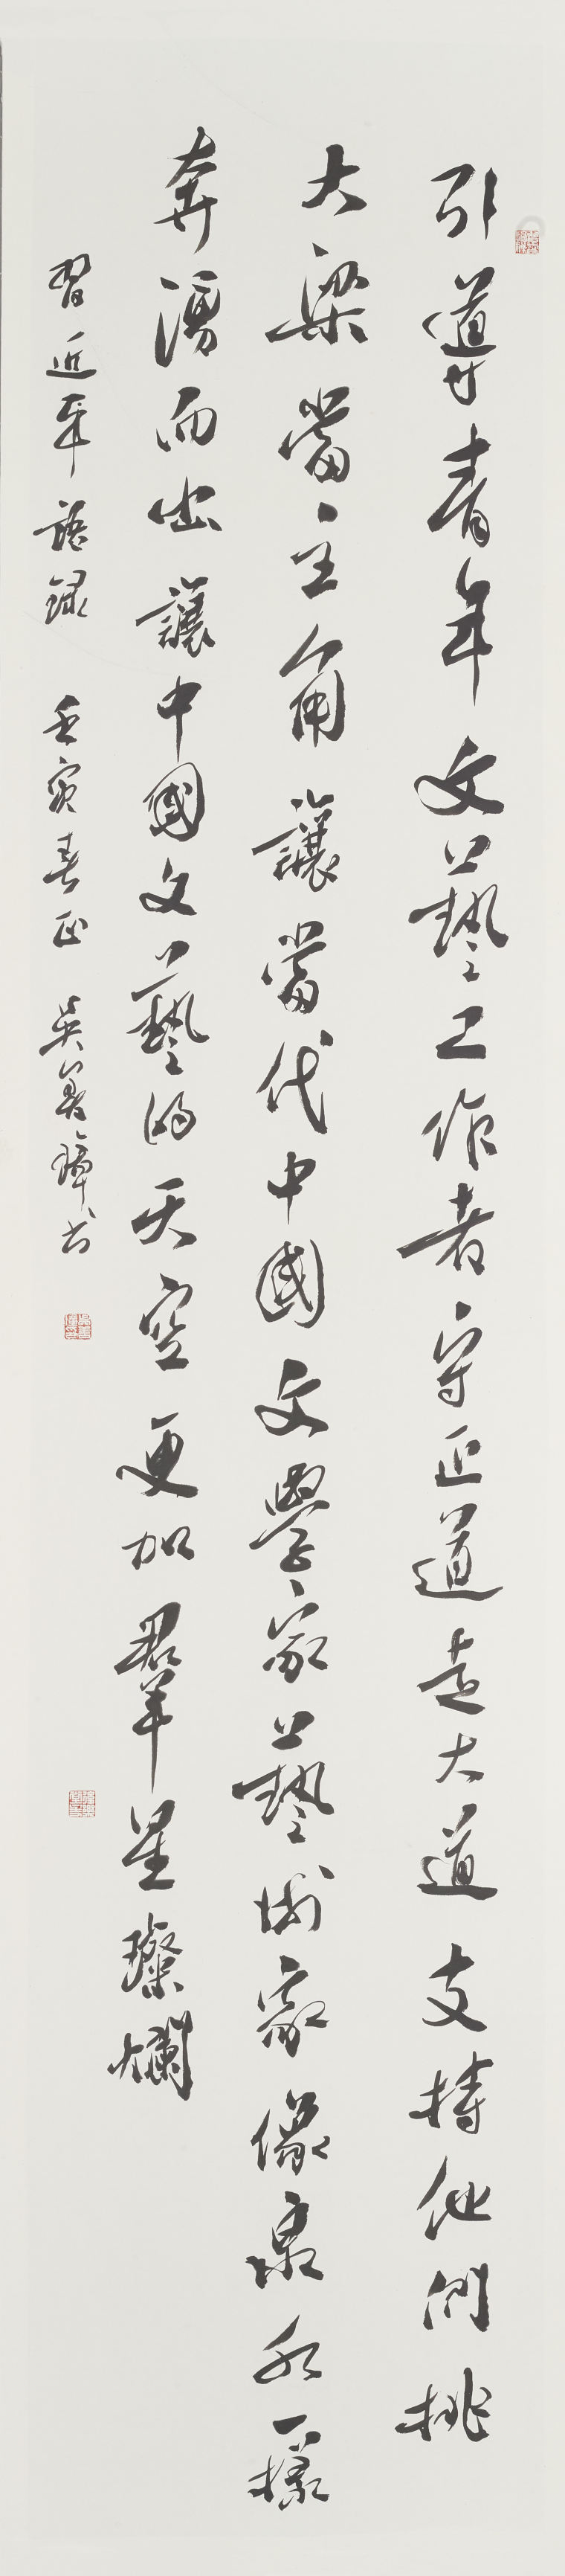 引導青年文藝工作者守正道走大道支持他們挑
大梁當主角讓當代中國文學家藝術家像泉水一樣
奔湧而出讓中國文藝的天空更加群星璨爛
習近平語錄 壬寅春正 吳美璋書